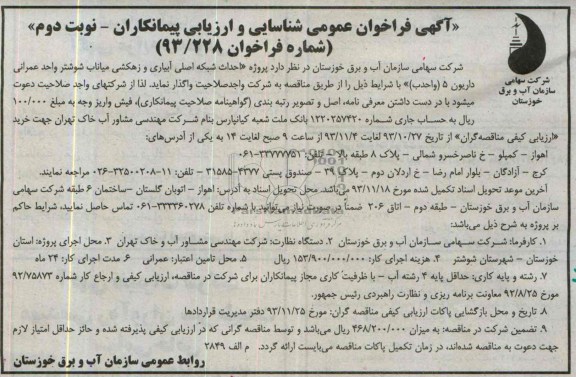 «آگهی فراخوان عمومی شناسایی و ارزیابی پیمانکاران – نوبت دوم»
(شماره فراخوان ۹۳/۲۲۸)
شرکت سهامی
سازمان آب و برق
خوزستان
شرکت سهامی سازمان آب و برق خوزستان در نظر دارد پروژه «احداث شبکه اصلی آبیاری و زهکشی میاناب شوشتر واحد عمرانی
داریون ۵ (واحدب)» با شرایط ذیل را از طریق مناقصه به شرکت واجدصلاحیت واگذار نماید. لذا از شرکتهای واجد صلاحیت دعوت
میشود با در دست داشتن معرفی نامه، اصل و تصویر رتبه بندی (گواهینامه صلاحیت پیمانکاری)، فیش واریز وجه به مبلغ ۱۰۰/۰۰۰
ریال به حساب جاری شماره ۱۲۲۰۲۵۷۴۲۰ بانک ملت شعبه کیانپارس بنام شرکت مهندسی مشاور آب خاک تهران جهت خرید
«ارزیابی کیفی مناقصه‌گران» از تاریخ ۹۳/۱۰/۲۷ لغایت ۹۳/۱۱/۴ از ساعت ۹ صبح لغایت ۱۴ به یکی از آدرس‌های:
اهواز – کمپلو – خ ناصرخسرو شمالی – پلاک ۸ طبقه بالا – تلفن: ۳۳۷۷۷۷۵۱-۰۶۱
کرج – آزادگان – بلوار امام رضا – خ اردلان دوم – پلاک ۳۹ – صندوق پستی ۴۳۷۷-۳۱۵۸۵ – تلفن: ۱۱-۳۲۵۰۰۲۰۸-۰۲۶ مراجعه نمایند.
آخرین موعد تحویل اسناد تکمیل شده مورخ ۹۳/۱۱/۱۸ می‌باشد. محل تحویل اسناد به آدرس: اهواز – اتوبان گلستان – ساختمان ۶ طبقه شرکت سهامی
سازمان آب و برق خوزستان – طبقه دوم – اتاق ۲۰۶ ضمناً در صورت نیاز می‌توانید با شماره تلفن ۳۳۳۶۰۲۷۸-۰۶۱ تماس حاصل نمایید، شرایط حاکم
بر پروژه به شرح ذیل می‌باشد:
۱. کارفرما: شرکت سهامی سازمان آب و برق خوزستان ۲. دستگاه نظارت: شرکت مهندسی مشاور آب و خاک تهران ۳. محل اجرای پروژه: استان
خوزستان – شهرستان شوشتر ۴. هزینه اجرای کار: ۱۵۳/۹۰۰/۰۰۰/۰۰۰ ریال ۵. محل تامین اعتبار: عمرانی ۶. مدت اجرای کار: ۲۴ ماه
۷. رشته و پایه کاری: حداقل پایه ۴ رشته آب – با ظرفیت کاری مجاز پیمانکاران برای شرکت در مناقصه، ارزیابی کیفی و ارجاع کار شماره ۹۲/۷۵۸۷۳
مورخ ۹۲/۸/۲۵ معاونت برنامه ریزی و نظارت راهبردی رئیس جمهور.
۸. تاریخ و محل بازگشایی پاکات ارزیابی کیفی مناقصه گران: مورخ ۹۳/۱۱/۲۵ دفتر مدیریت قراردادها
۹. تضمین شرکت در مناقصه: به میزان ۴۶۸/۲۰۰/۰۰۰ ریال می‌باشد و توسط مناقصه گرانی که در ارزیابی کیفی پذیرفته شده و حائز حداقل امتیاز لازم
جهت دعوت به مناقصه شده‌اند، در زمان تکمیل پاکات مناقصه می‌بایست ارائه گردد. م الف ۲۸۴۹
روابط عمومی سازمان آب و برق خوزستان